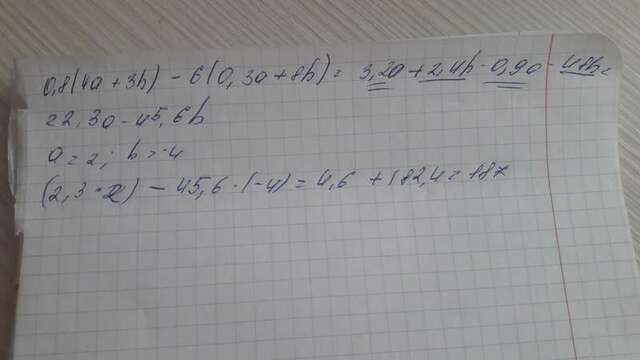 0,8(4a+3b) - 6(0,3a+8b) = 3,2a + 2,4b - 0,9a - 48b =
= 2,3a - 45,6b
a = 2; b = -4
(2,3 · 2) - 45,6 · (-4) = 4,6 + 182,4 = 187